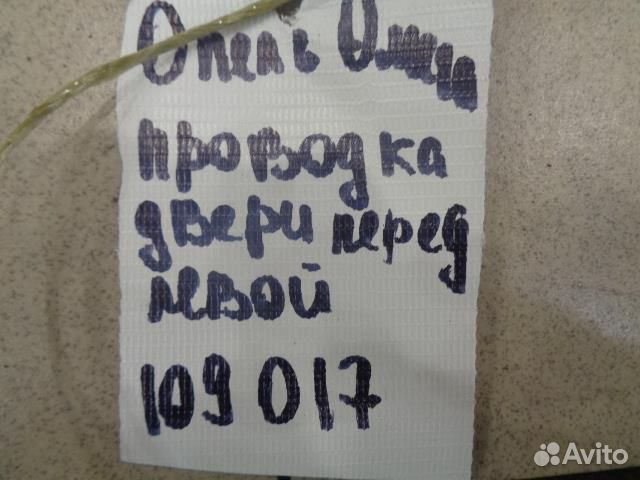 Опель Омега
проводка
двери перед
левой
109 017
Avito